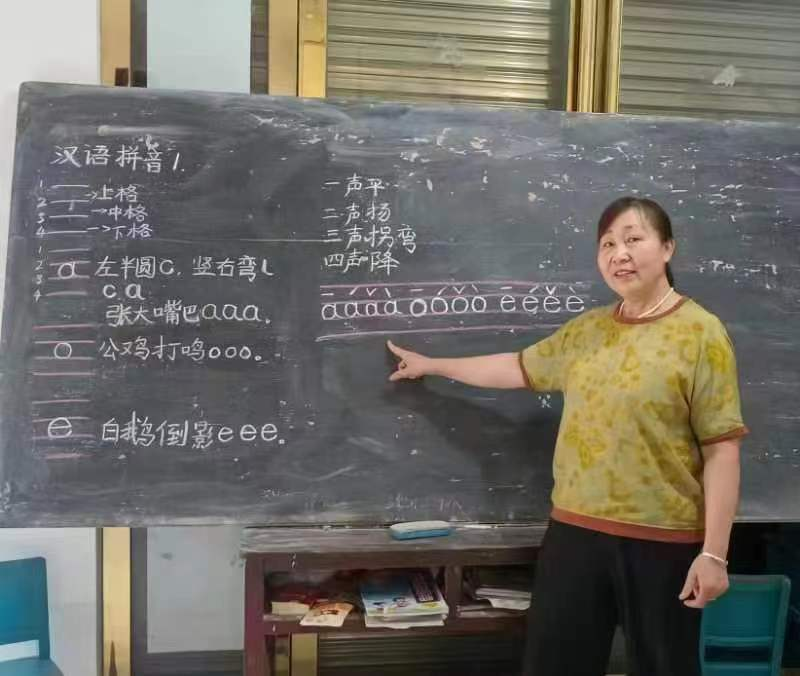 汉语拼音1.
1
2
3
4
→上格
→中格
→下格
1
2
3
4
a 左半圆c,竖右弯ι
c a
张大嘴巴aaa。
o 公鸡打鸣ooo。
e 白鹅倒影eee。
一声平
二声扬
三声拐弯
四声降
ā á ǎ à ō ó ǒ ò ē é ě è